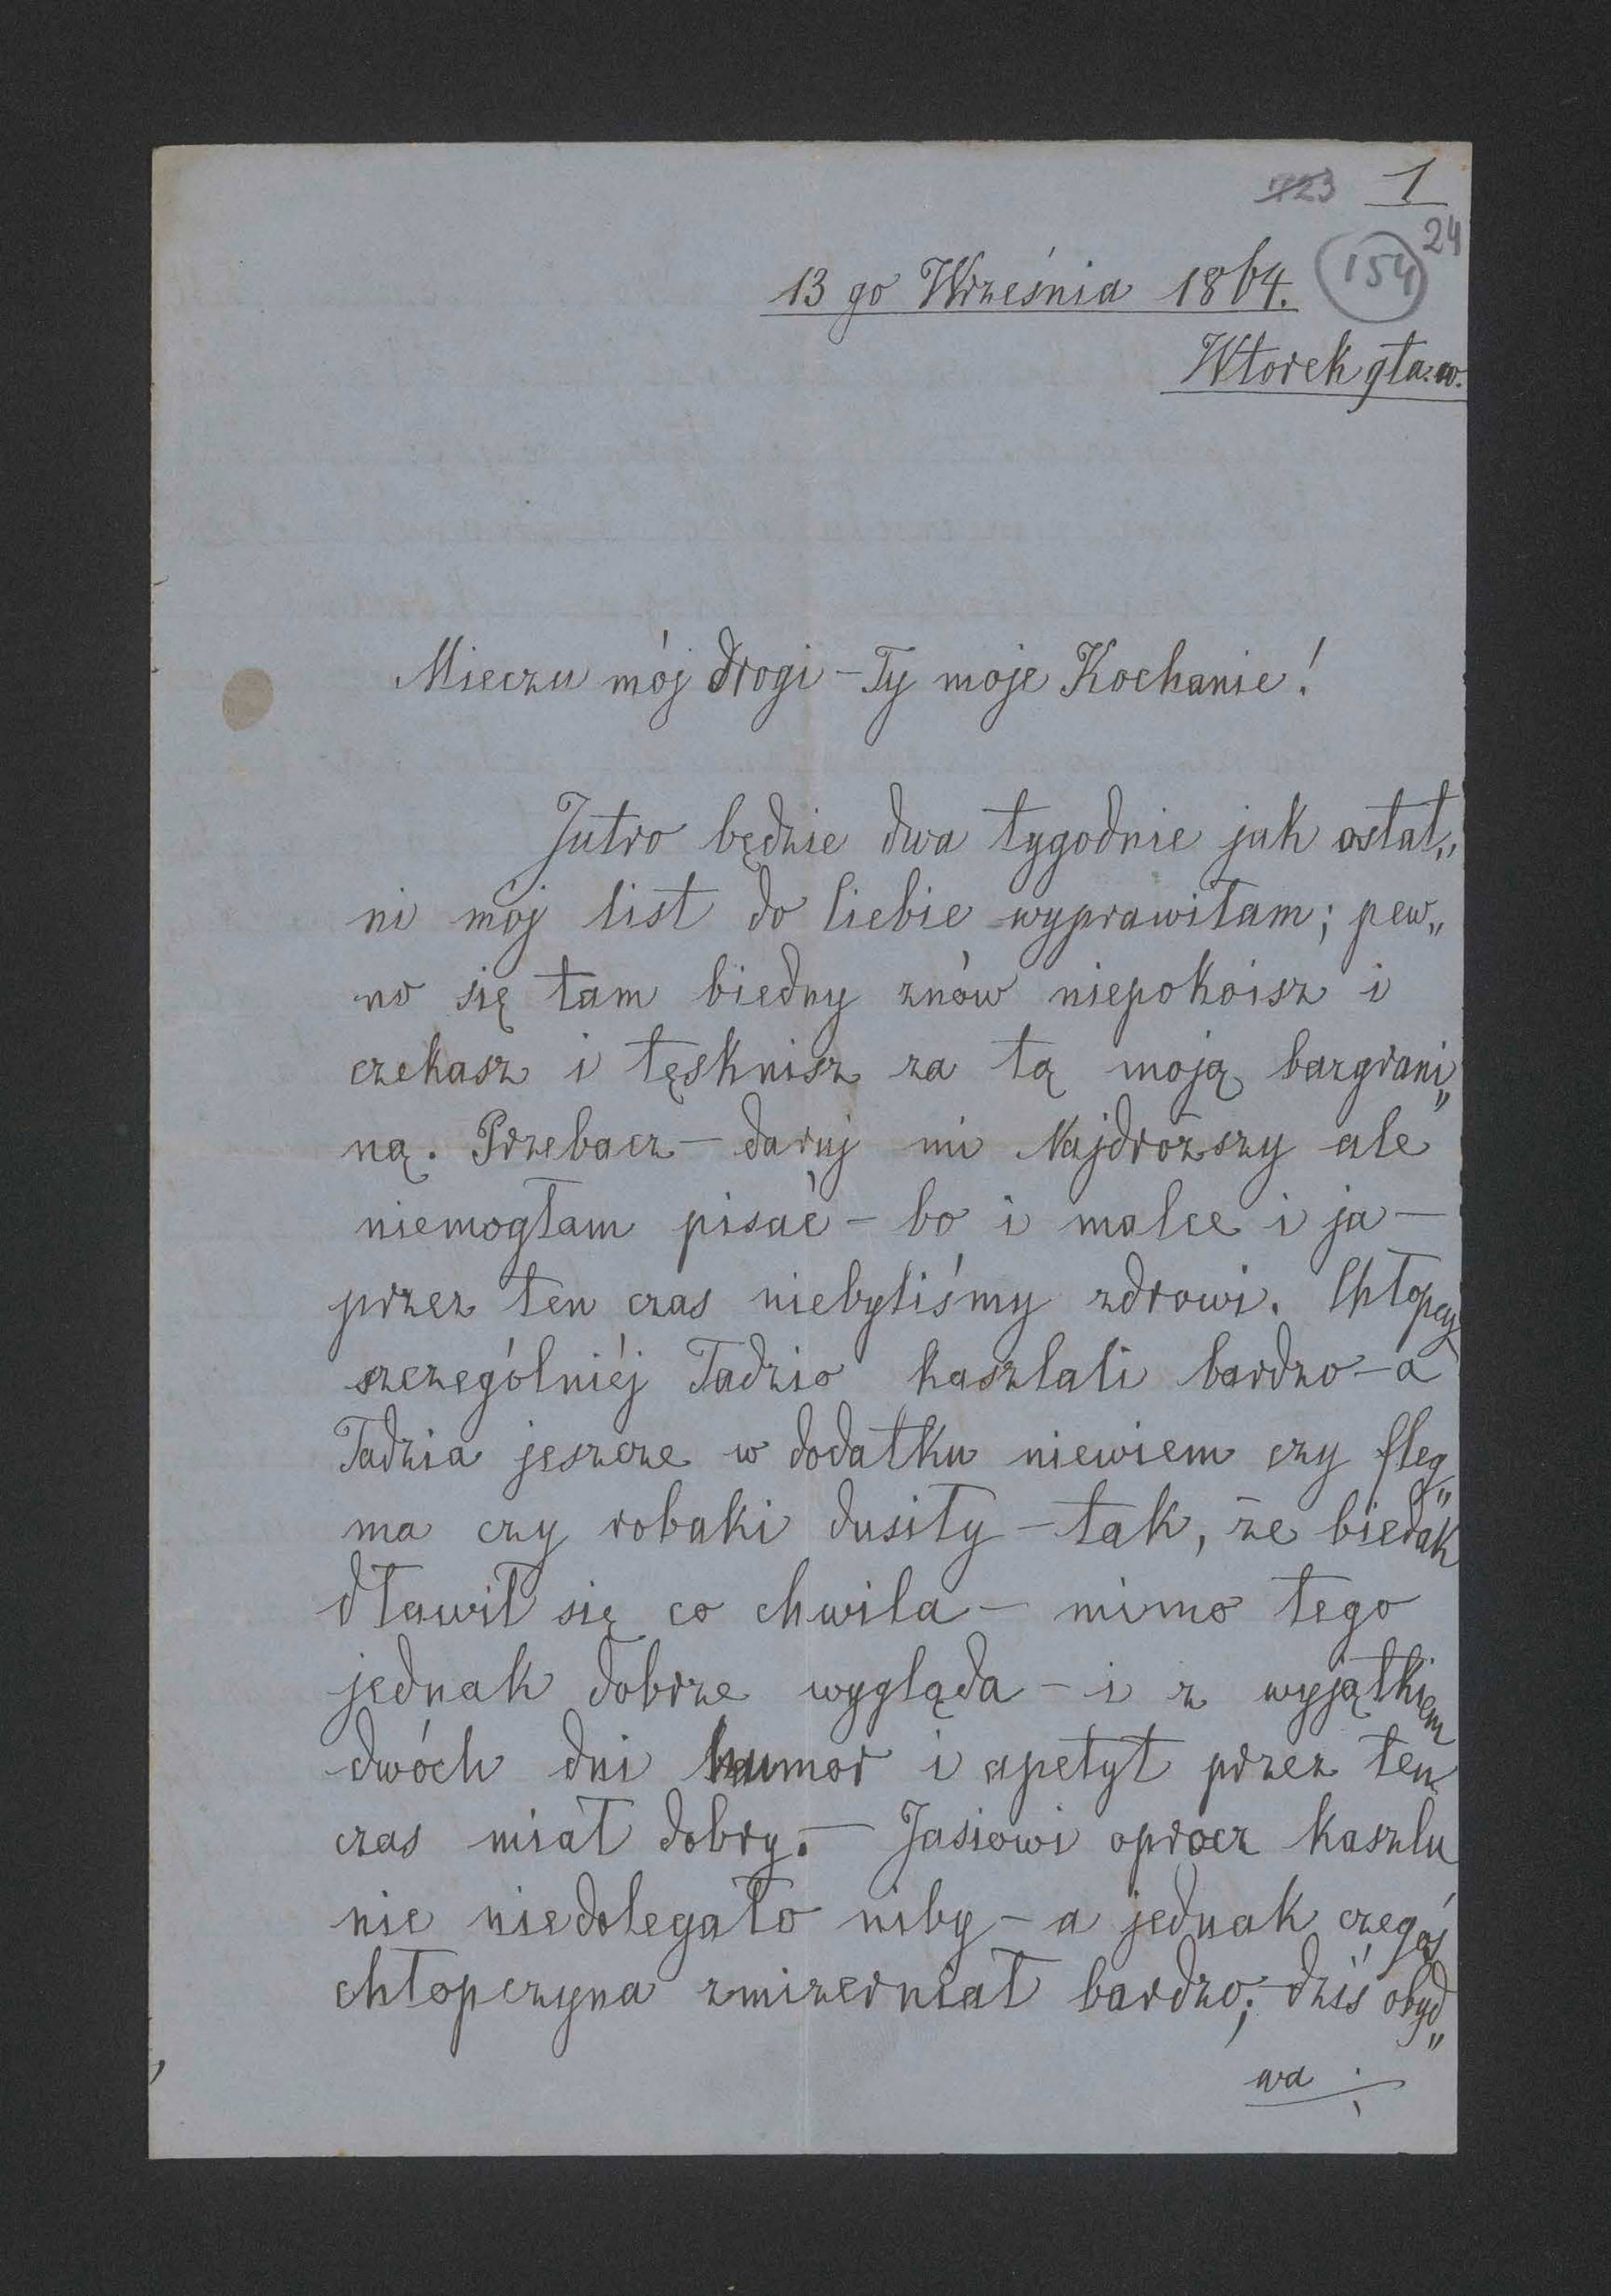 1
24
154
13 go Września 1864.
Wtorek 9ta. w.
Mieczu mój drogi - Ty moje Kochanie!
Jutro będzie dwa tygodnie jak ostat„
ni mój list do Ciebie wyprawiłam; pew„
no się tam biedny znów niepokoisz i
czekasz i tęsknisz za tą moją bazgrani„
ną. Przebacz - daruj mi Najdroższy ale
niemogłam pisać - bo i malce i ja -
przez ten czas niebyliśmy zdrowi. Chłopcy
szczególniéj Tadzio kaszlali bardzo - a
Tadzia jeszcze w dodatku niewiem czy fleg„
ma czy robaki dusiły - tak, że biedak
dławił się co chwila - mimo tego
jednak dobrze wygląda - i z wyjątkiem
dwóch dni humor i apetyt przez ten
czas miał dobry. - Jasiowi oprocz kaszlu
nic niedolegało niby - a jednak czegoś
chłopczyna zmizerniał bardzo; - dziś obyd„
wa